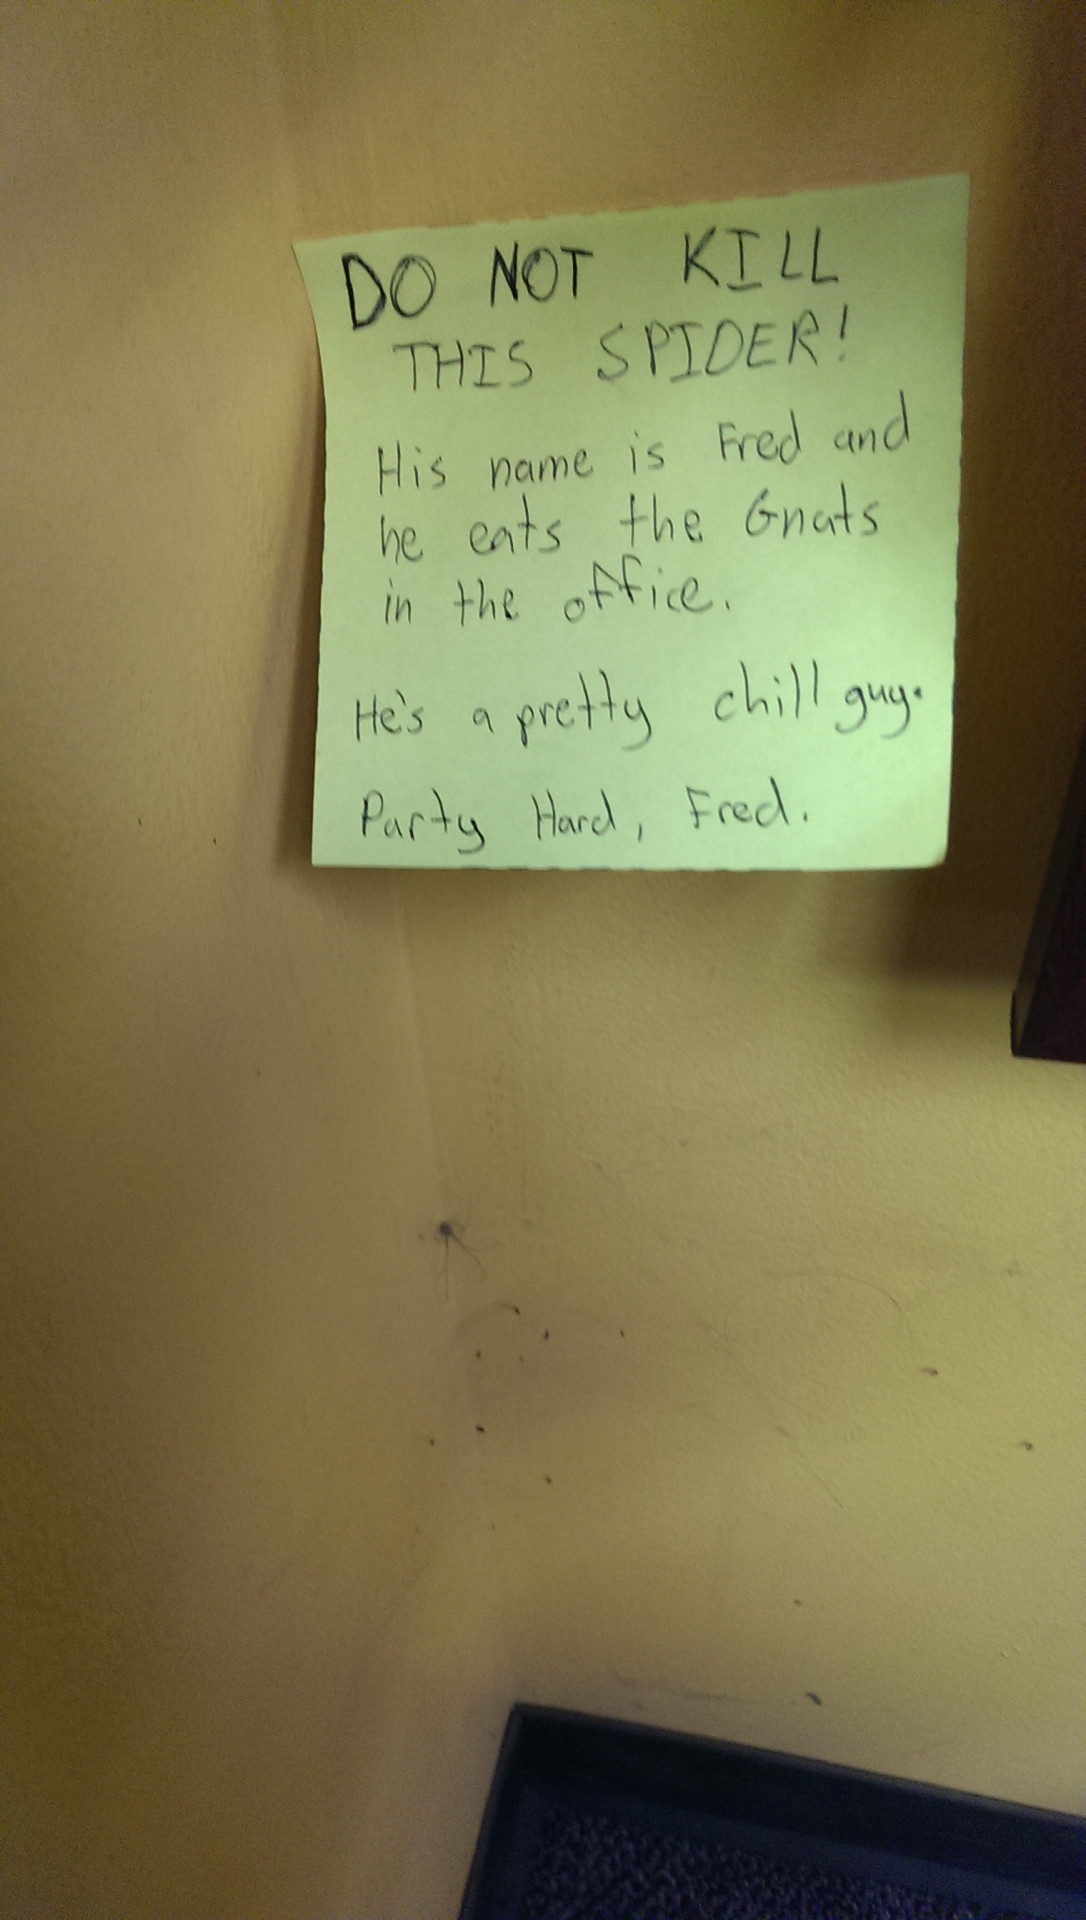 DO NOT KILL
THIS SPIDER!
His name is Fred and
he eats the Gnats
in the office.
He's a pretty chill guy.
Party Hard, Fred.